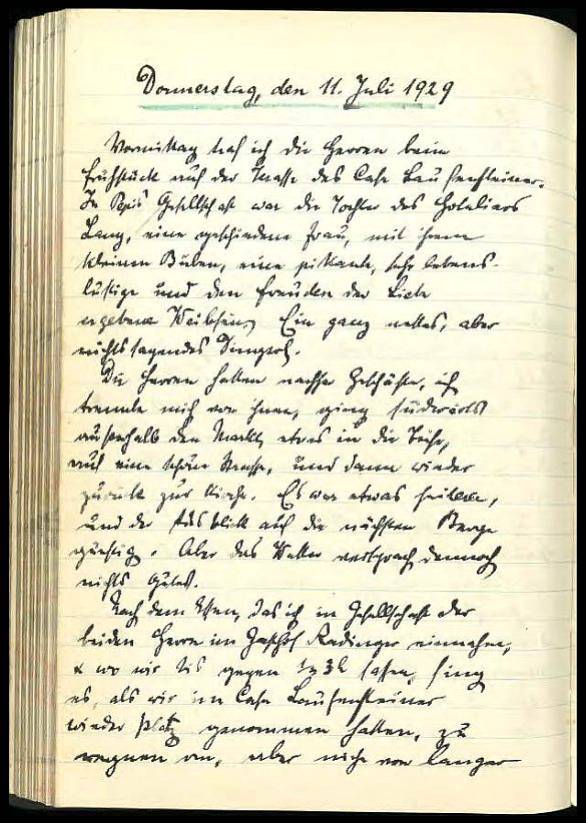 Donnerstag, den 11. Juli 1929
Vormittag traf ich die Herren beim
Frühstück auf der Terrasse des Cafe Laussensteiner.
In Pepis Gesellschaft war die Tochter des Hoteliers
Lang, eine geschiedene Frau, mit ihrem
kleinen Buben, eine pikante, sehr lebens-
lustige und den Freuden der Liebe
ergebene Weibchen. Ein ganz nettes, aber
nichtssagendes Dingerl.
Die Herren hatten nachher Geschäfte, ich
trennte mich von ihnen, ging südwärts
außerhalb den Markt, etwas in die Höhe,
auf eine schöne Strasse, und dann wieder
zurück zur Kirche. Es war etwas heiterer,
und der Ausblick auf die nächsten Berge
günstig. Aber das Wetter versprach dennoch
nichts Gutes.
Nach dem Essen, das ich in Gesellschaft der
beiden Herren im Gasthof Radinger einnahm,
& wo wir bis gegen ½3h saßen, fing
es, als wir im Cafe
wieder Platz genommen hatten, zu
regnen an, aber nicht von langer